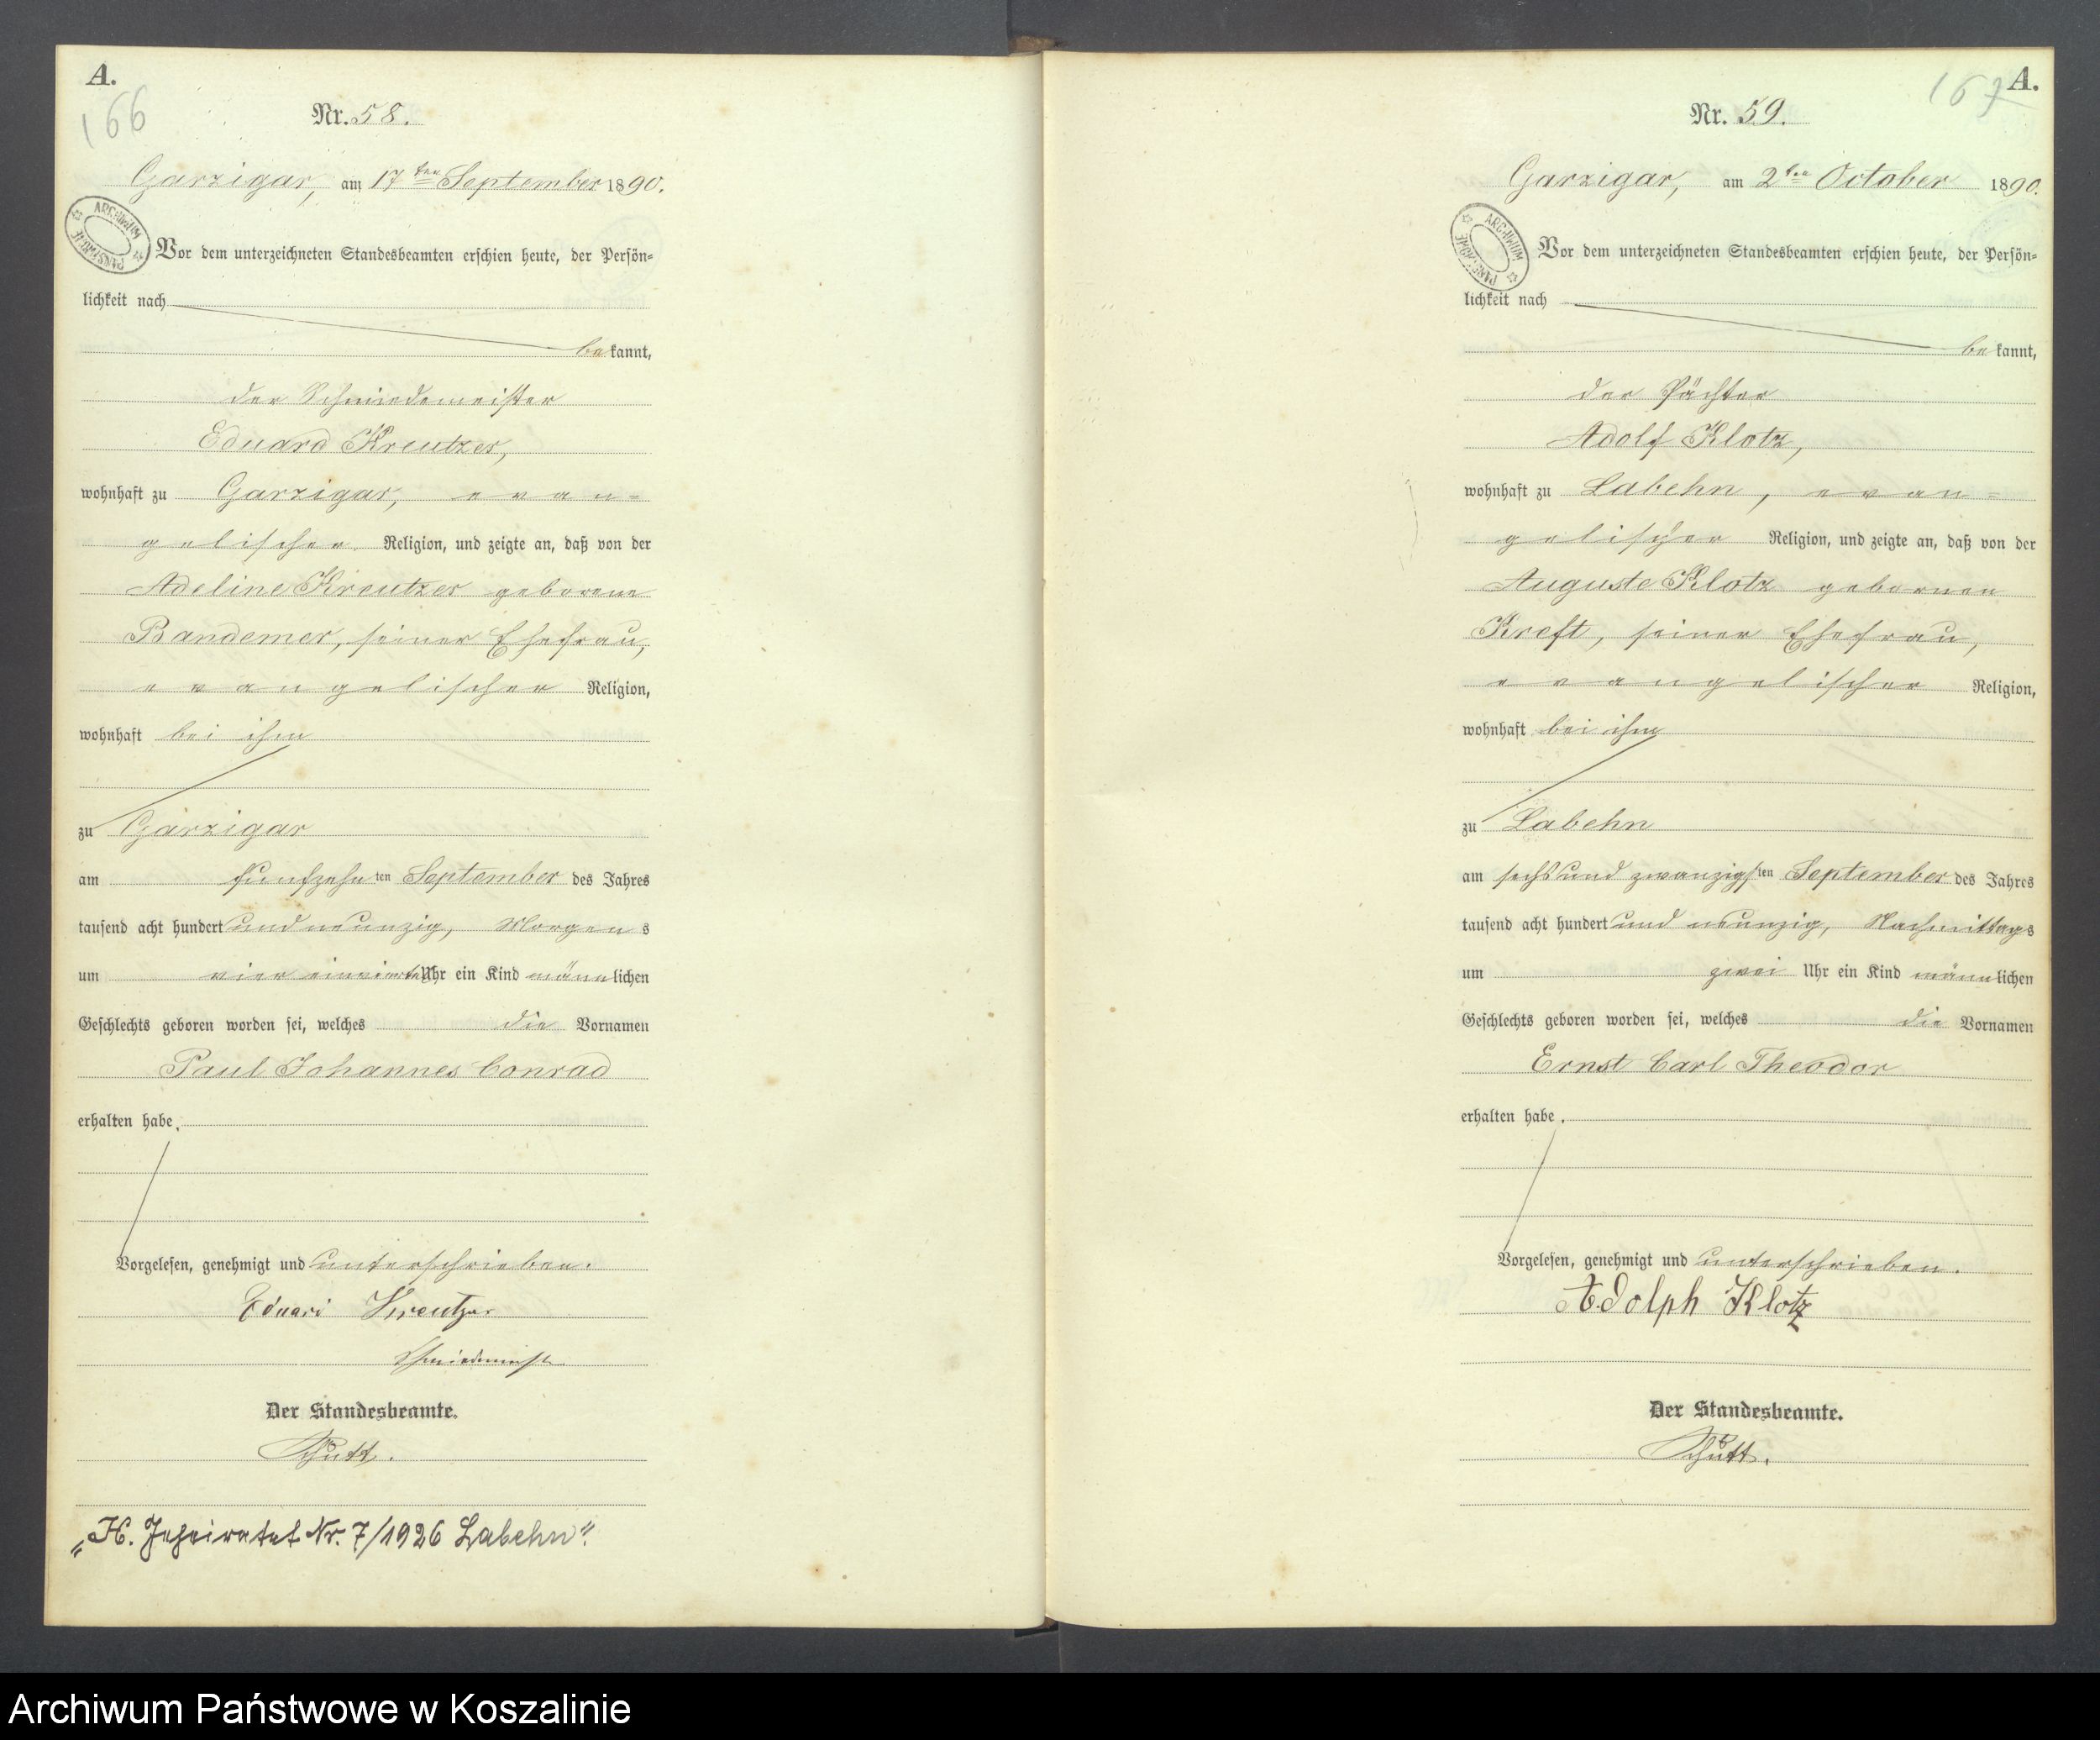 A.
166
Nr. 58.
Garzigar, am 17ten September 1890.
ARCHIWUM PAŃSTWOWE
Vor dem unterzeichneten Standesbeamten erschien heute, der Persön=
lichkeit nach
bekannt,
der Schmiedemeister
Eduard Kreutzer,
wohnhaft zu Garzigar, evan=
gelischer Religion, und zeigte an, daß von der
Adeline Kreutzer geborene
Bandemer, seiner Ehefrau,
evangelischer Religion,
wohnhaft bei ihm
zu Garzigar
am fünfzehnten September des Jahres
tausend acht hundert und neunzig, Morgens
um vier einviertel Uhr ein Kind männlichen
Geschlechts geboren worden sei, welches die Vornamen
Paul Johannes Conrad
erhalten habe.
Vorgelesen, genehmigt und unterschrieben.
Eduard Kreutzer
Schmiedemeist
Der Standesbeamte.
Schütt.
„H. Geheiratet Nr. 7/1926 Labehn".
A.
167
Nr. 59.
Garzigar, am 2ten October 1890.
ARCHIWUM PAŃSTWOWE
Vor dem unterzeichneten Standesbeamten erschien heute, der Persön=
lichkeit nach
bekannt,
der Pächter
Adolf Klotz,
wohnhaft zu Labehn, evan=
gelischer Religion, und zeigte an, daß von der
Auguste Klotz gebornen
Kreft, seiner Ehefrau,
evangelischer Religion,
wohnhaft bei ihm
zu Labehn
am sechsundzwanzigsten September des Jahres
tausend acht hundert und neunzig, Nachmittags
um zwei Uhr ein Kind männlichen
Geschlechts geboren worden sei, welches die Vornamen
Ernst Carl Theodor
erhalten habe.
Vorgelesen, genehmigt und unterschrieben.
Adolph Klotz
Der Standesbeamte.
Schütt.
Archiwum Państwowe w Koszalinie